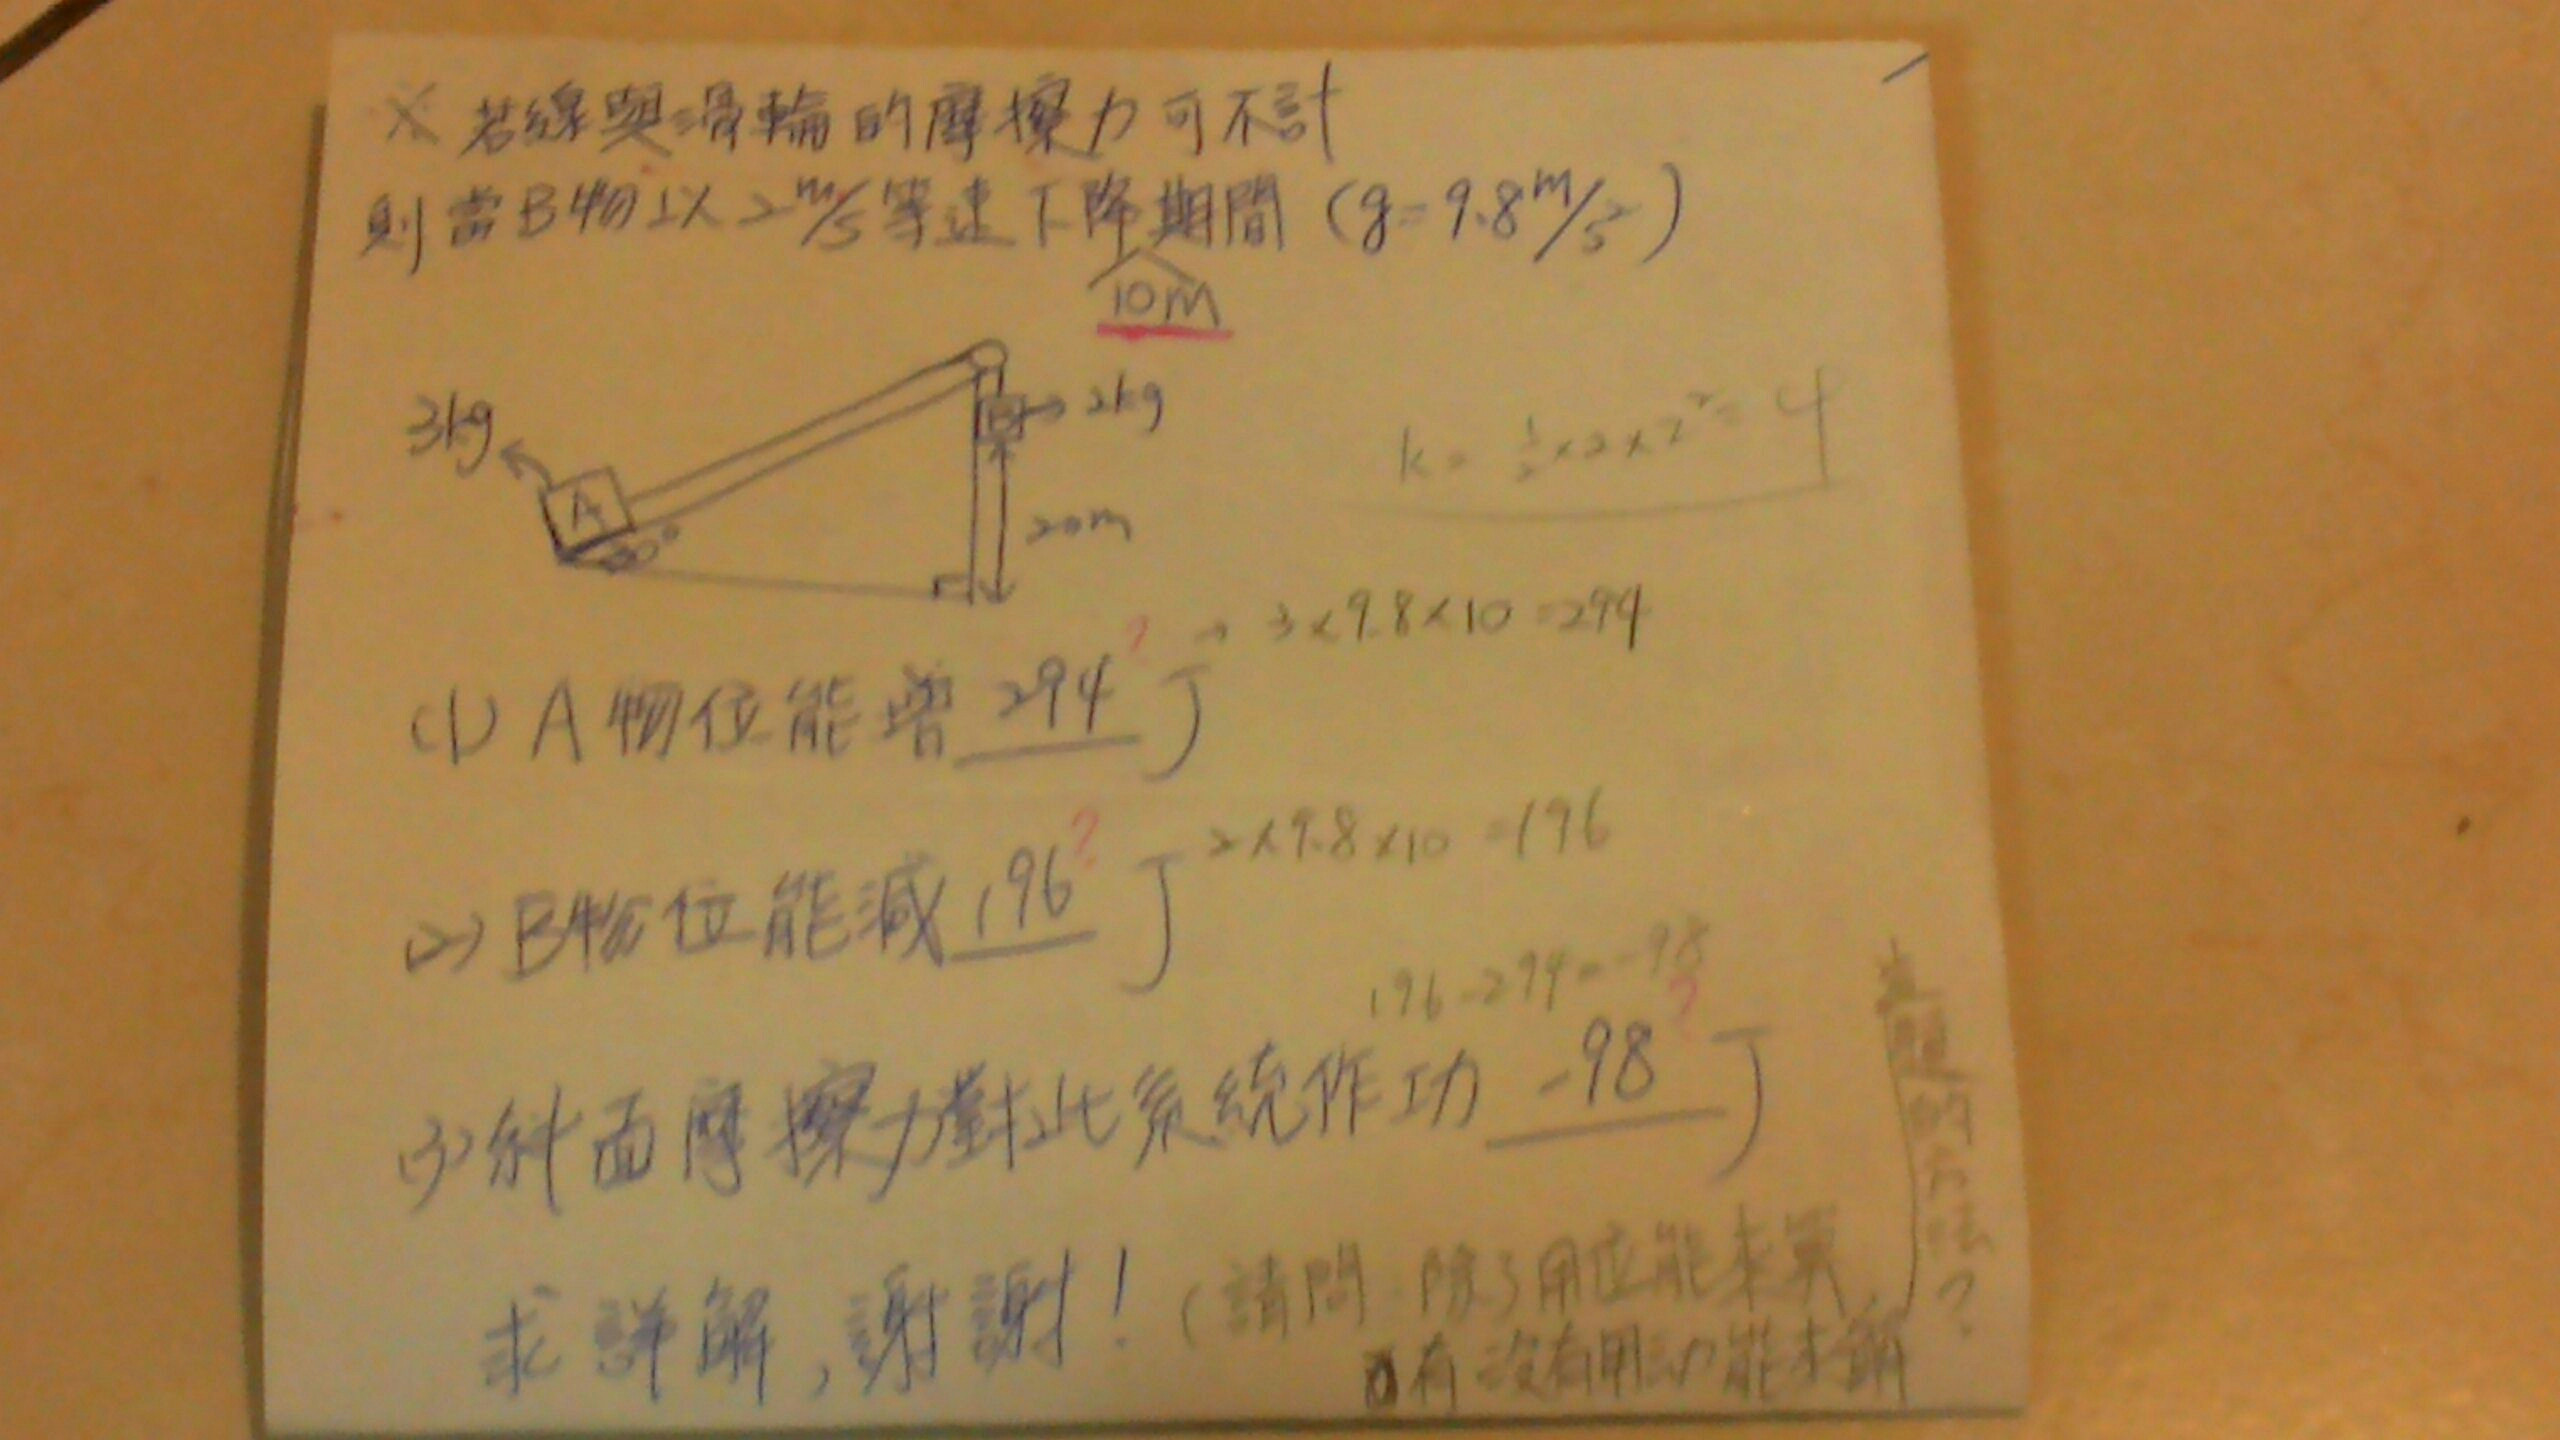 ※若線與滑輪的摩擦力可不計
則當B物以2m/s等速下降期間(g=9.8m/s²)
10m
3kg
2kg
A
B
30°
20m
k=½×2×2²=4
(1) A物位能增 294? J → 3×9.8×10=294
(2) B物位能減 196? J 2×9.8×10=196
196-294=-98
(3) 斜面摩擦力對此系統作功 -98? J
求詳解,謝謝!(請問 除了用位能來算,
有沒有用動能來解
本題的方法?